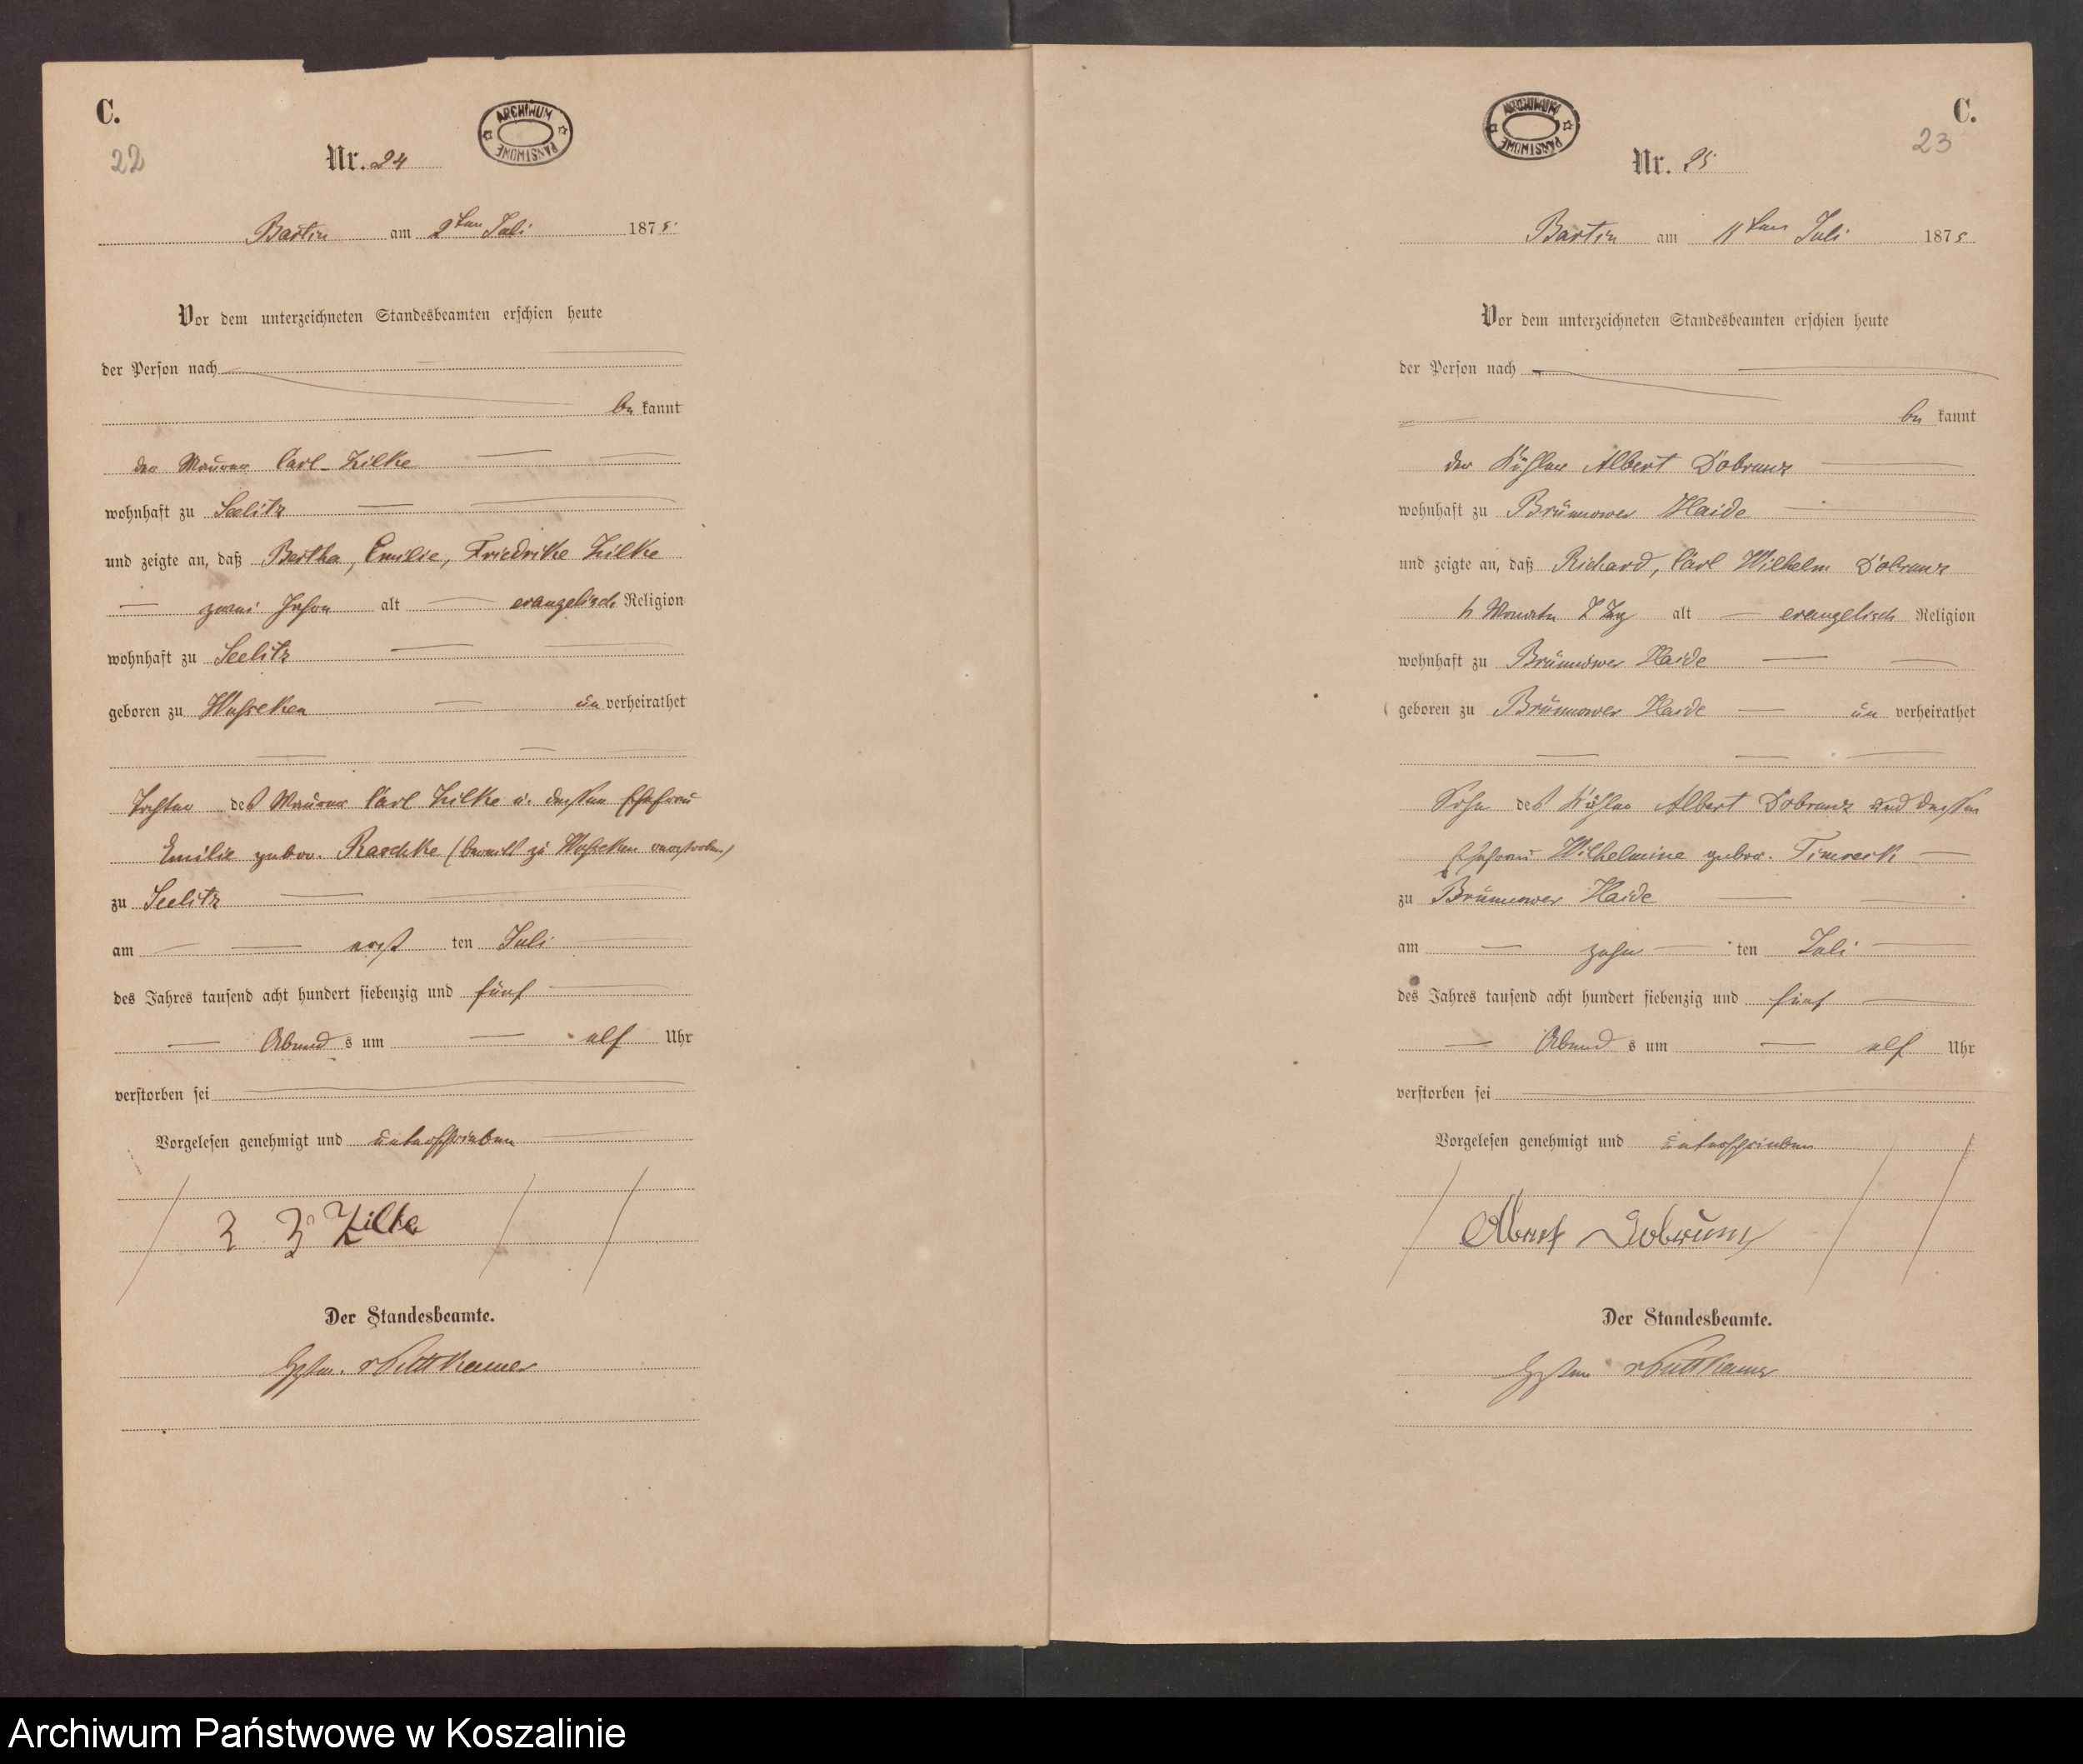 C.
22
ARCHIWUM PAŃSTWOWE
Nr. 24
Bartin am 2ten Juli 1875
Vor dem unterzeichneten Standesbeamten erschien heute
der Person nach
be kannt
der Maurer Carl Zilke
wohnhaft zu Seelitz
und zeigte an, daß Bertha, Emilie, Friedrike Zilke
zwei Jahre alt evangelisch Religion
wohnhaft zu Seelitz
geboren zu Wusseken un verheirathet
Tochter des Maurer Carl Zilke u. dessen Ehefrau
Emilie gebor. Raschke (bereits zu Wusseken verstorben)
zu Seelitz
am erst ten Juli
des Jahres tausend acht hundert siebenzig und fünf
Abend s um elf Uhr
verstorben sei
Vorgelesen genehmigt und unterschrieben
Zilke
Der Standesbeamte.
v Puttkamer
C.
23
ARCHIWUM PAŃSTWOWE
Nr. 25
Bartin am 11ten Juli 1875
Vor dem unterzeichneten Standesbeamten erschien heute
der Person nach
be kannt
der Albert Dobrunz
wohnhaft zu Brünnower Haide
und zeigte an, daß Richard, Carl Wilhelm Dobrunz
Monate alt evangelisch Religion
wohnhaft zu Brünnower Haide
geboren zu Brünnower Haide un verheirathet
Sohn des Albert Dobrunz und dessen
Ehefrau Wilhelmine gebor.
zu Brünnower Haide
am zehn ten Juli
des Jahres tausend acht hundert siebenzig und fünf
Abend s um elf Uhr
verstorben sei
Vorgelesen genehmigt und unterschrieben
Albert Dobrunz
Der Standesbeamte.
v Puttkamer
Archiwum Państwowe w Koszalinie